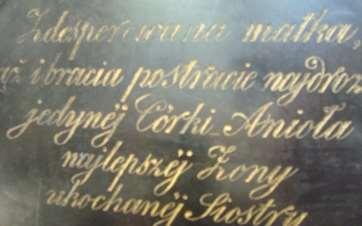 Zdesperowana matka,
ąż i bracia po stracie najdroż
jedynéj Córki_Anioła
najlepszéj Żony
ukochanéj Siostry